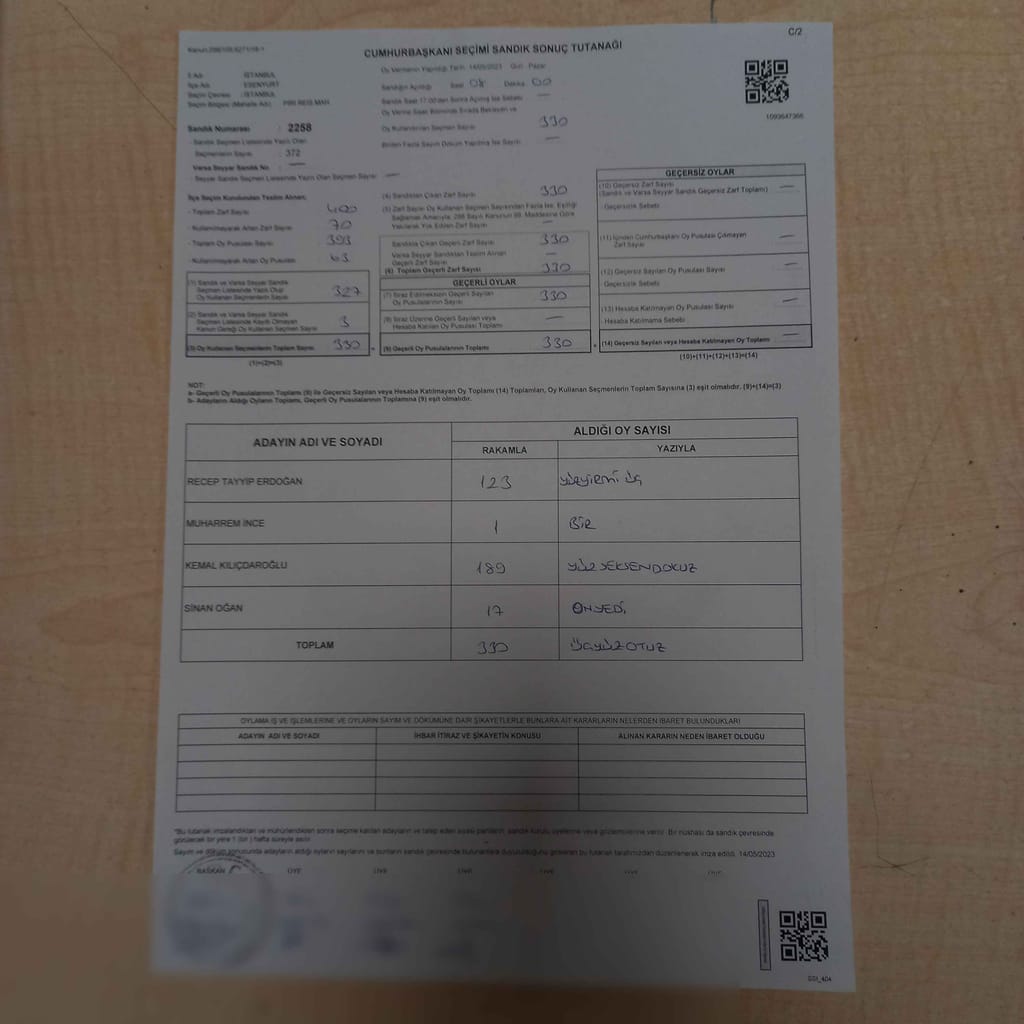 C/2
CUMHURBAŞKANI SEÇİMİ SANDIK SONUÇ TUTANAĞI
Oy Vermenin Yapıldığı Tarih: 14/05/2023 Gün: Pazar
İl Adı : İSTANBUL
İlçe Adı : ESENYURT
Seçim Çevresi : İSTANBUL
Seçim Bölgesi (Mahalle Adı) : PİRİ REİS MAH.
Sandığın Açıldığı Saat 08 Dakika 00
Sandık Saat 17.00'den Sonra Açılmış İse Sebebi —
Oy Kullandırılan Seçmen Sayısı 330
Birden Fazla Sayım Döküm Yapılmış İse Sayısı —
1093647366
Sandık Numarası : 2258
- Sandık Seçmen Listesinde Yazılı Olan
Seçmenlerin Sayısı : 372
Varsa Seyyar Sandık No : —
- Seyyar Sandık Seçmen Listesinde Yazılı Olan Seçmen Sayısı : —
İlçe Seçim Kurulundan Teslim Alınan;
- Toplam Zarf Sayısı 400
- Kullanılmayarak Artan Zarf Sayısı 70
- Toplam Oy Pusulası Sayısı 393
- Kullanılmayarak Artan Oy Pusulası 63
(1) Sandık ve Varsa Seyyar Sandık
Seçmen Listesinde Yazılı Olup
Oy Kullanan Seçmenlerin Sayısı 327
(2) Sandık ve Varsa Seyyar Sandık
Seçmen Listesinde Kayıtlı Olmayan
Kanun Gereği Oy Kullanan Seçmen Sayısı 3
(3) Oy Kullanan Seçmenlerin Toplam Sayısı 330
(1)+(2)=(3)
(4) Sandıktan Çıkan Zarf Sayısı 330
(5) Zarf Sayısı Oy Kullanan Seçmen Sayısından Fazla İse, Eşitliği
Sağlamak Amacıyla, 298 Sayılı Kanunun 98. Maddesine Göre
Yakılarak Yok Edilen Zarf Sayısı —
Sandıkta Çıkan Geçerli Zarf Sayısı 330
Varsa Seyyar Sandıktan Teslim Alınan
Geçerli Zarf Sayısı —
(6) Toplam Geçerli Zarf Sayısı 330
GEÇERLİ OYLAR
(7) İtiraz Edilmeksizin Geçerli Sayılan
Oy Pusulalarının Sayısı 330
(8) İtiraz Üzerine Geçerli Sayılan veya
Hesaba Katılan Oy Pusulası Toplamı —
(9) Geçerli Oy Pusulalarının Toplamı 330
GEÇERSİZ OYLAR
(10) Geçersiz Zarf Sayısı —
(Sandık ve Varsa Seyyar Sandık Geçersiz Zarf Toplamı)
Geçersizlik Sebebi
(11) İçinden Cumhurbaşkanı Oy Pusulası Çıkmayan
Zarf Sayısı —
(12) Geçersiz Sayılan Oy Pusulası Sayısı —
Geçersizlik Sebebi
(13) Hesaba Katılmayan Oy Pusulası Sayısı —
Hesaba Katılmama Sebebi
(14) Geçersiz Sayılan veya Hesaba Katılmayan Oy Toplamı —
(10)+(11)+(12)+(13)=(14)
NOT:
a- Geçerli Oy Pusulalarının Toplamı (9) ile Geçersiz Sayılan veya Hesaba Katılmayan Oy Toplamı (14) Toplamları, Oy Kullanan Seçmenlerin Toplam Sayısına (3) eşit olmalıdır. (9)+(14)=(3)
b- Adayların Aldığı Oyların Toplamı, Geçerli Oy Pusulalarının Toplamına (9) eşit olmalıdır.
ADAYIN ADI VE SOYADI ALDIĞI OY SAYISI
RAKAMLA YAZIYLA
RECEP TAYYİP ERDOĞAN 123 yüzyirmi üç
MUHARREM İNCE 1 BİR
KEMAL KILIÇDAROĞLU 189 YÜZSEKSENDOKUZ
SİNAN OĞAN 17 ONYEDİ
TOPLAM 330 ÜÇYÜZOTUZ
OYLAMA İŞ VE İŞLEMLERİNE VE OYLARIN SAYIM VE DÖKÜMÜNE DAİR ŞİKAYETLERLE BUNLARA AİT KARARLARIN NELERDEN İBARET BULUNDUKLARI
ADAYIN ADI VE SOYADI İHBAR İTİRAZ VE ŞİKAYETİN KONUSU ALINAN KARARIN NEDEN İBARET OLDUĞU
*Bu tutanak imzalandıktan ve mühürlendikten sonra seçime katılan adayların ve talep eden siyasi partilerin, sandık kurulu üyelerine veya gözlemcilerine verilir. Bir nüshası da sandık çevresinde
görülecek bir yere 1 (bir) hafta süreyle asılır.
Sayım ve döküm sonucunda adayların aldığı oyların sayılarını ve bunların sandık çevresinde bulunanlara duyurulduğunu gösteren bu tutanak tarafımızdan düzenlenerek imza edildi. 14/05/2023
BAŞKAN ÜYE ÜYE ÜYE ÜYE ÜYE ÜYE